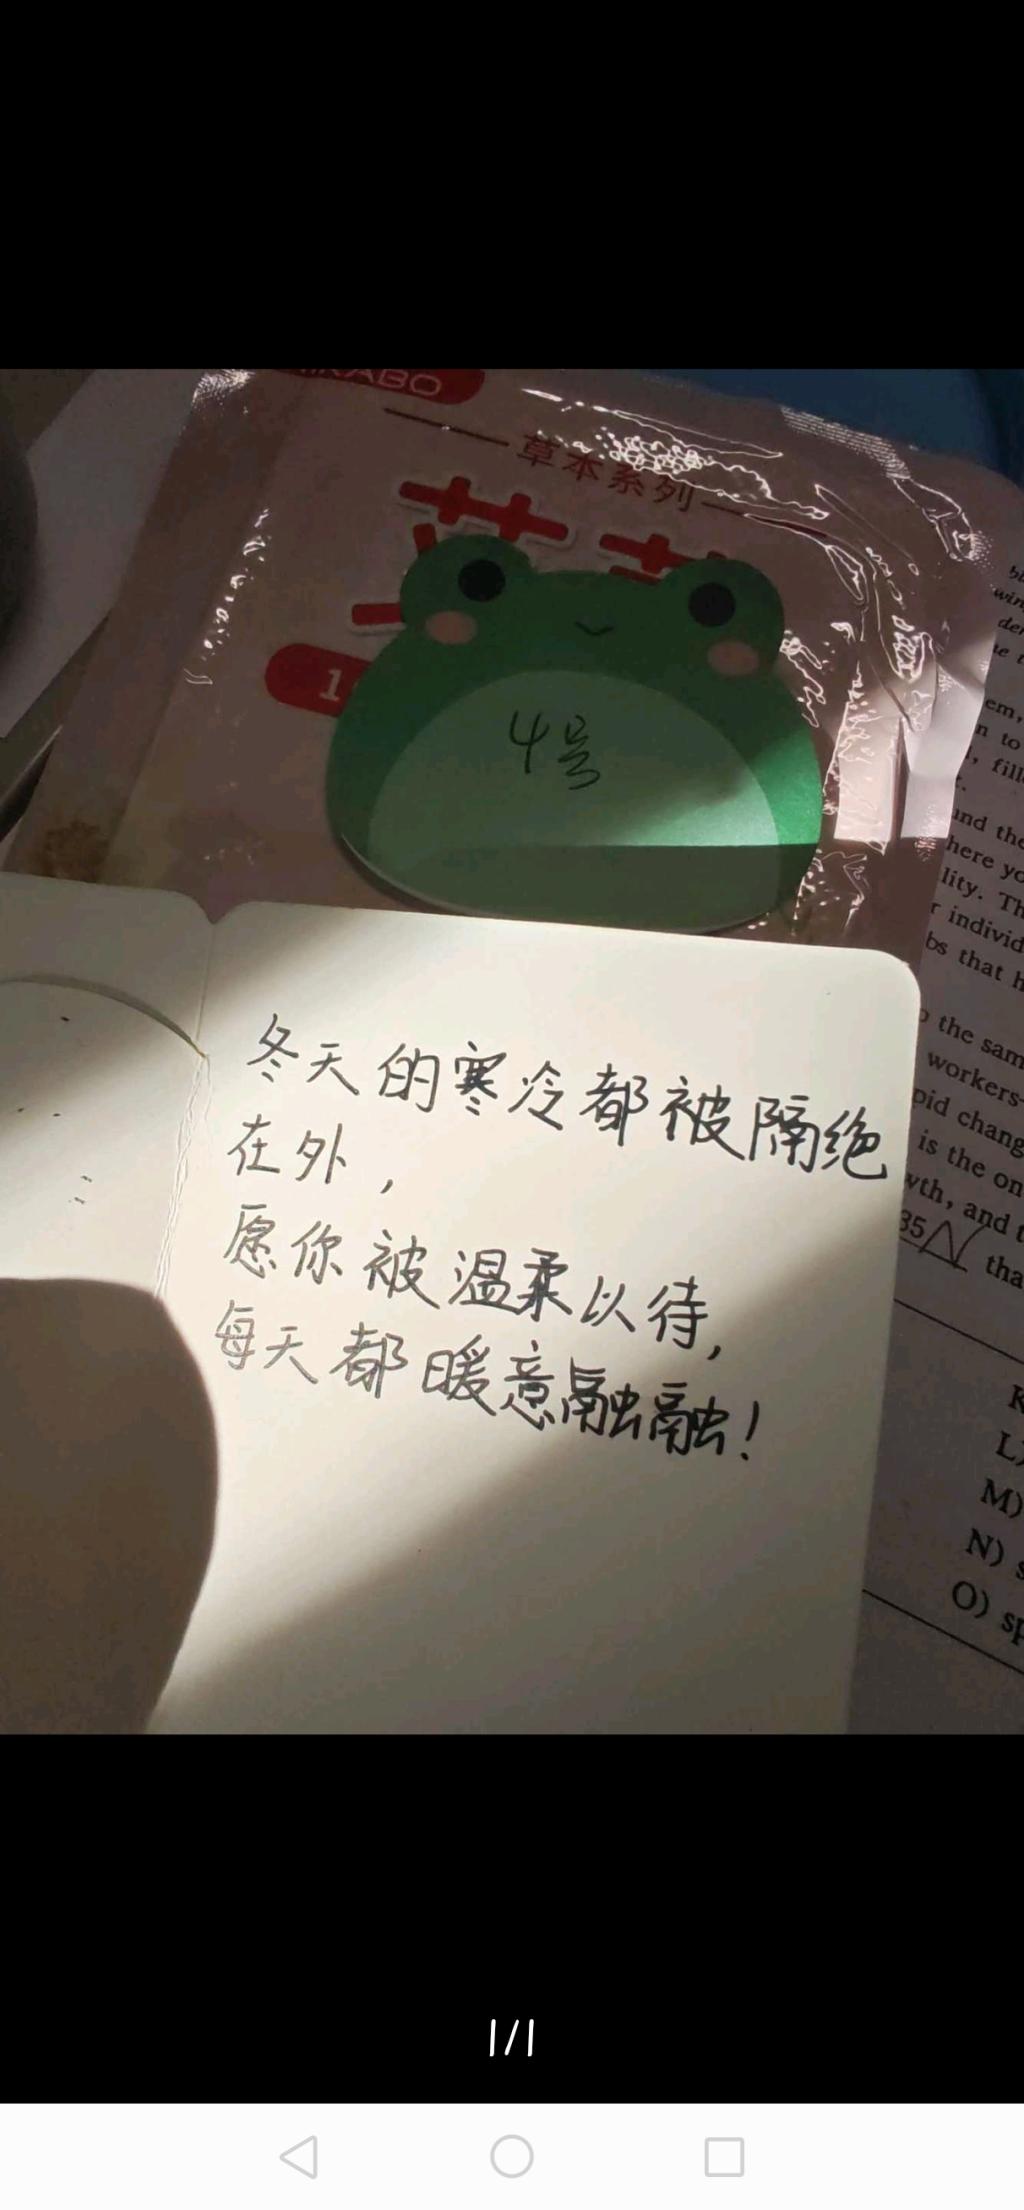 草本系列
1
4号
冬天的寒冷都被隔绝
在外，
愿你被温柔以待，
每天都暖意融融！
em,
n to
, fill
und the
here yo
lity. Th
r individ
bs that h
the sam
workers-
pid chang
is the on
wth, and t
35
tha
K
L)
M)
N) s
O) sp
1/1